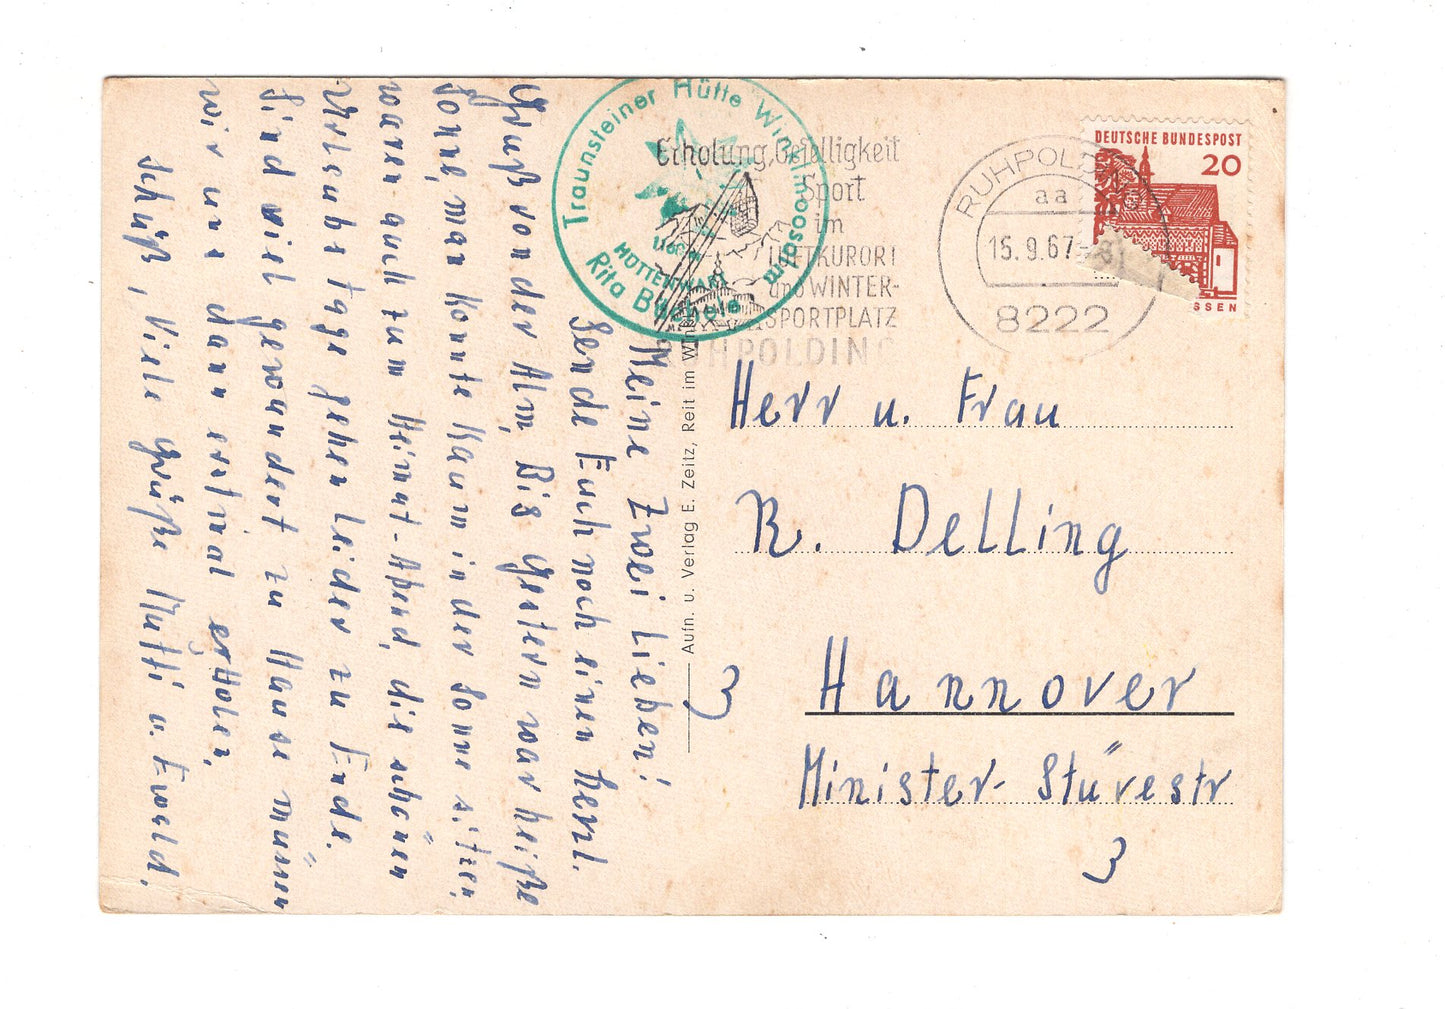 Meine Zwei Lieben!
Sende Euch noch einen herzl.
Gruß von der Alm, Bis Gestern war heiße
Sonne, man konnte kaum in der Sonne sitzen,
waren auch zum Heimat-Abend, die schönen
Urlaubstage gehen leider zu Ende.
Sind viel gewandert zu Hause müssen
wir uns dann erstmal erholen,
Schüß, Viele Grüße Mutti u. Ewald.
Traunsteiner Hütte Winklmoosalm
1160 m
HÜTTENWART
Rita
Erholung, Geselligkeit
Sport
im
LUFTKURORT
und WINTER-
SPORTPLATZ
RUHPOLDING
RUHPOLDING
aa
15.9.67-18
8222
DEUTSCHE BUNDESPOST
20
SSEN
Aufn. u. Verlag E. Zeitz, Reit im Winkl
Herr u. Frau
R. Delling
3 Hannover
Minister-Stüvestr
3